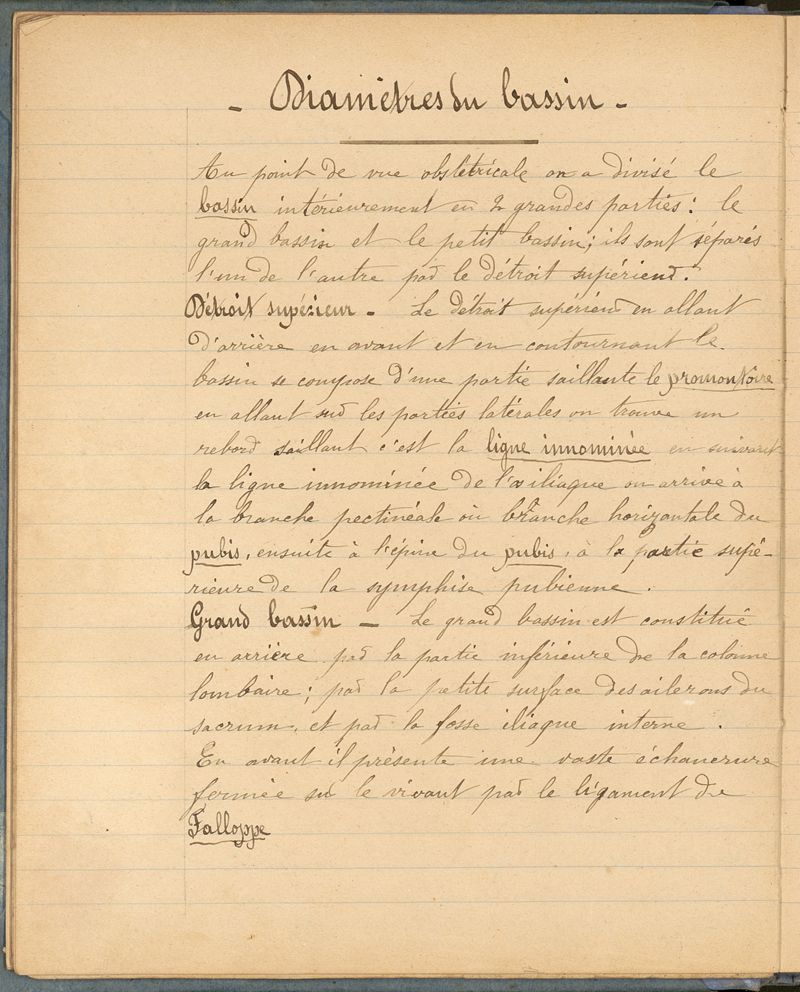 - Diamètres du bassin -
Au point de vue obstétricale on a divisé le
bassin intérieurement en 2 grandes parties : le
grand bassin et le petit bassin ; ils sont séparés
l'un de l'autre par le détroit supérieur.
Détroit supérieur - Le détroit supérieur en allant
d'arrière en avant et en contournant le
bassin se compose d'une partie saillante le promontoire
en allant sur les parties latérales on trouve un
rebord saillant c'est la ligne innominée en suivant
la ligne innominée de l'os iliaque on arrive à
la branche pectinéale où branche horizontale du
pubis, ensuite à l'épine du pubis, à la partie supé-
rieure de la symphise pubienne.
Grand bassin - Le grand bassin est constitué
en arrière par la partie inférieure de la colonne
lombaire ; par la petite surface des ailerons du
sacrum, et par la fosse iliaque interne.
En avant il présente une vaste échancrure
fermée sur le vivant par le ligament de
Falloppe